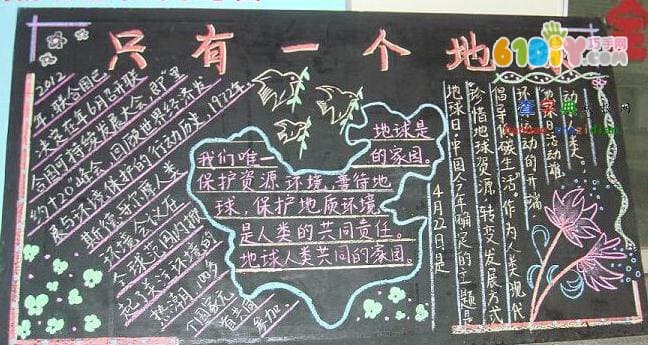 只有一个地
2012
年,联合国已
决定在年6月召开联
合国可持续发展大会,即“里
约+20”峰会,回顾世界经济发
展与环境保护的行动历史,1972年
斯德哥尔摩人类
环境会议在
全球范围内掀
起了关注环境的
热潮,
个国家元
参加。
我们唯一
地球是
的家园。
保护资源环境,善待地
球,保护地质环境
是人类的共同责任。
地球人类共同的家园。
4月22日是
地球日,中国今年确定的主题是
珍惜地球资源,转变发展方式
倡导低碳生活”。作为人类现代
环 动的开端
日活动
动 人类。
巧手网